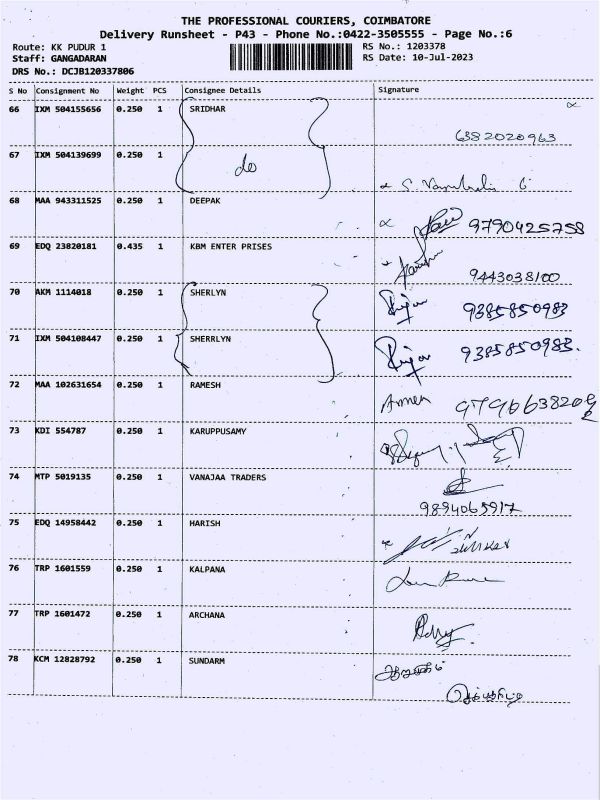 THE PROFESSIONAL COURIERS, COIMBATORE
Delivery Runsheet - P43 - Phone No.:0422-3505555 - Page No.:6
Route: KK PUDUR 1 RS No.: 1203378
Staff: GANGADARAN RS Date: 10-Jul-2023
DRS No.: DCJB120337806
S No Consignment No Weight PCS Consignee Details Signature
66 IXM 504155656 0.250 1 SRIDHAR
6382020963
67 IXM 504139699 0.250 1 do
68 MAA 943311525 0.250 1 DEEPAK 9790425758
69 EDQ 23820181 0.435 1 KBM ENTER PRISES
9443038100
70 AKM 1114018 0.250 1 SHERLYN 9385850983
71 IXM 504108447 0.250 1 SHERRLYN 9385850983.
72 MAA 102631654 0.250 1 RAMESH
73 KDI 554787 0.250 1 KARUPPUSAMY
74 MTP 5019135 0.250 1 VANAJAA TRADERS
9894065917
75 EDQ 14958442 0.250 1 HARISH
76 TRP 1601559 0.250 1 KALPANA
77 TRP 1601472 0.250 1 ARCHANA
78 KCM 12828792 0.250 1 SUNDARM